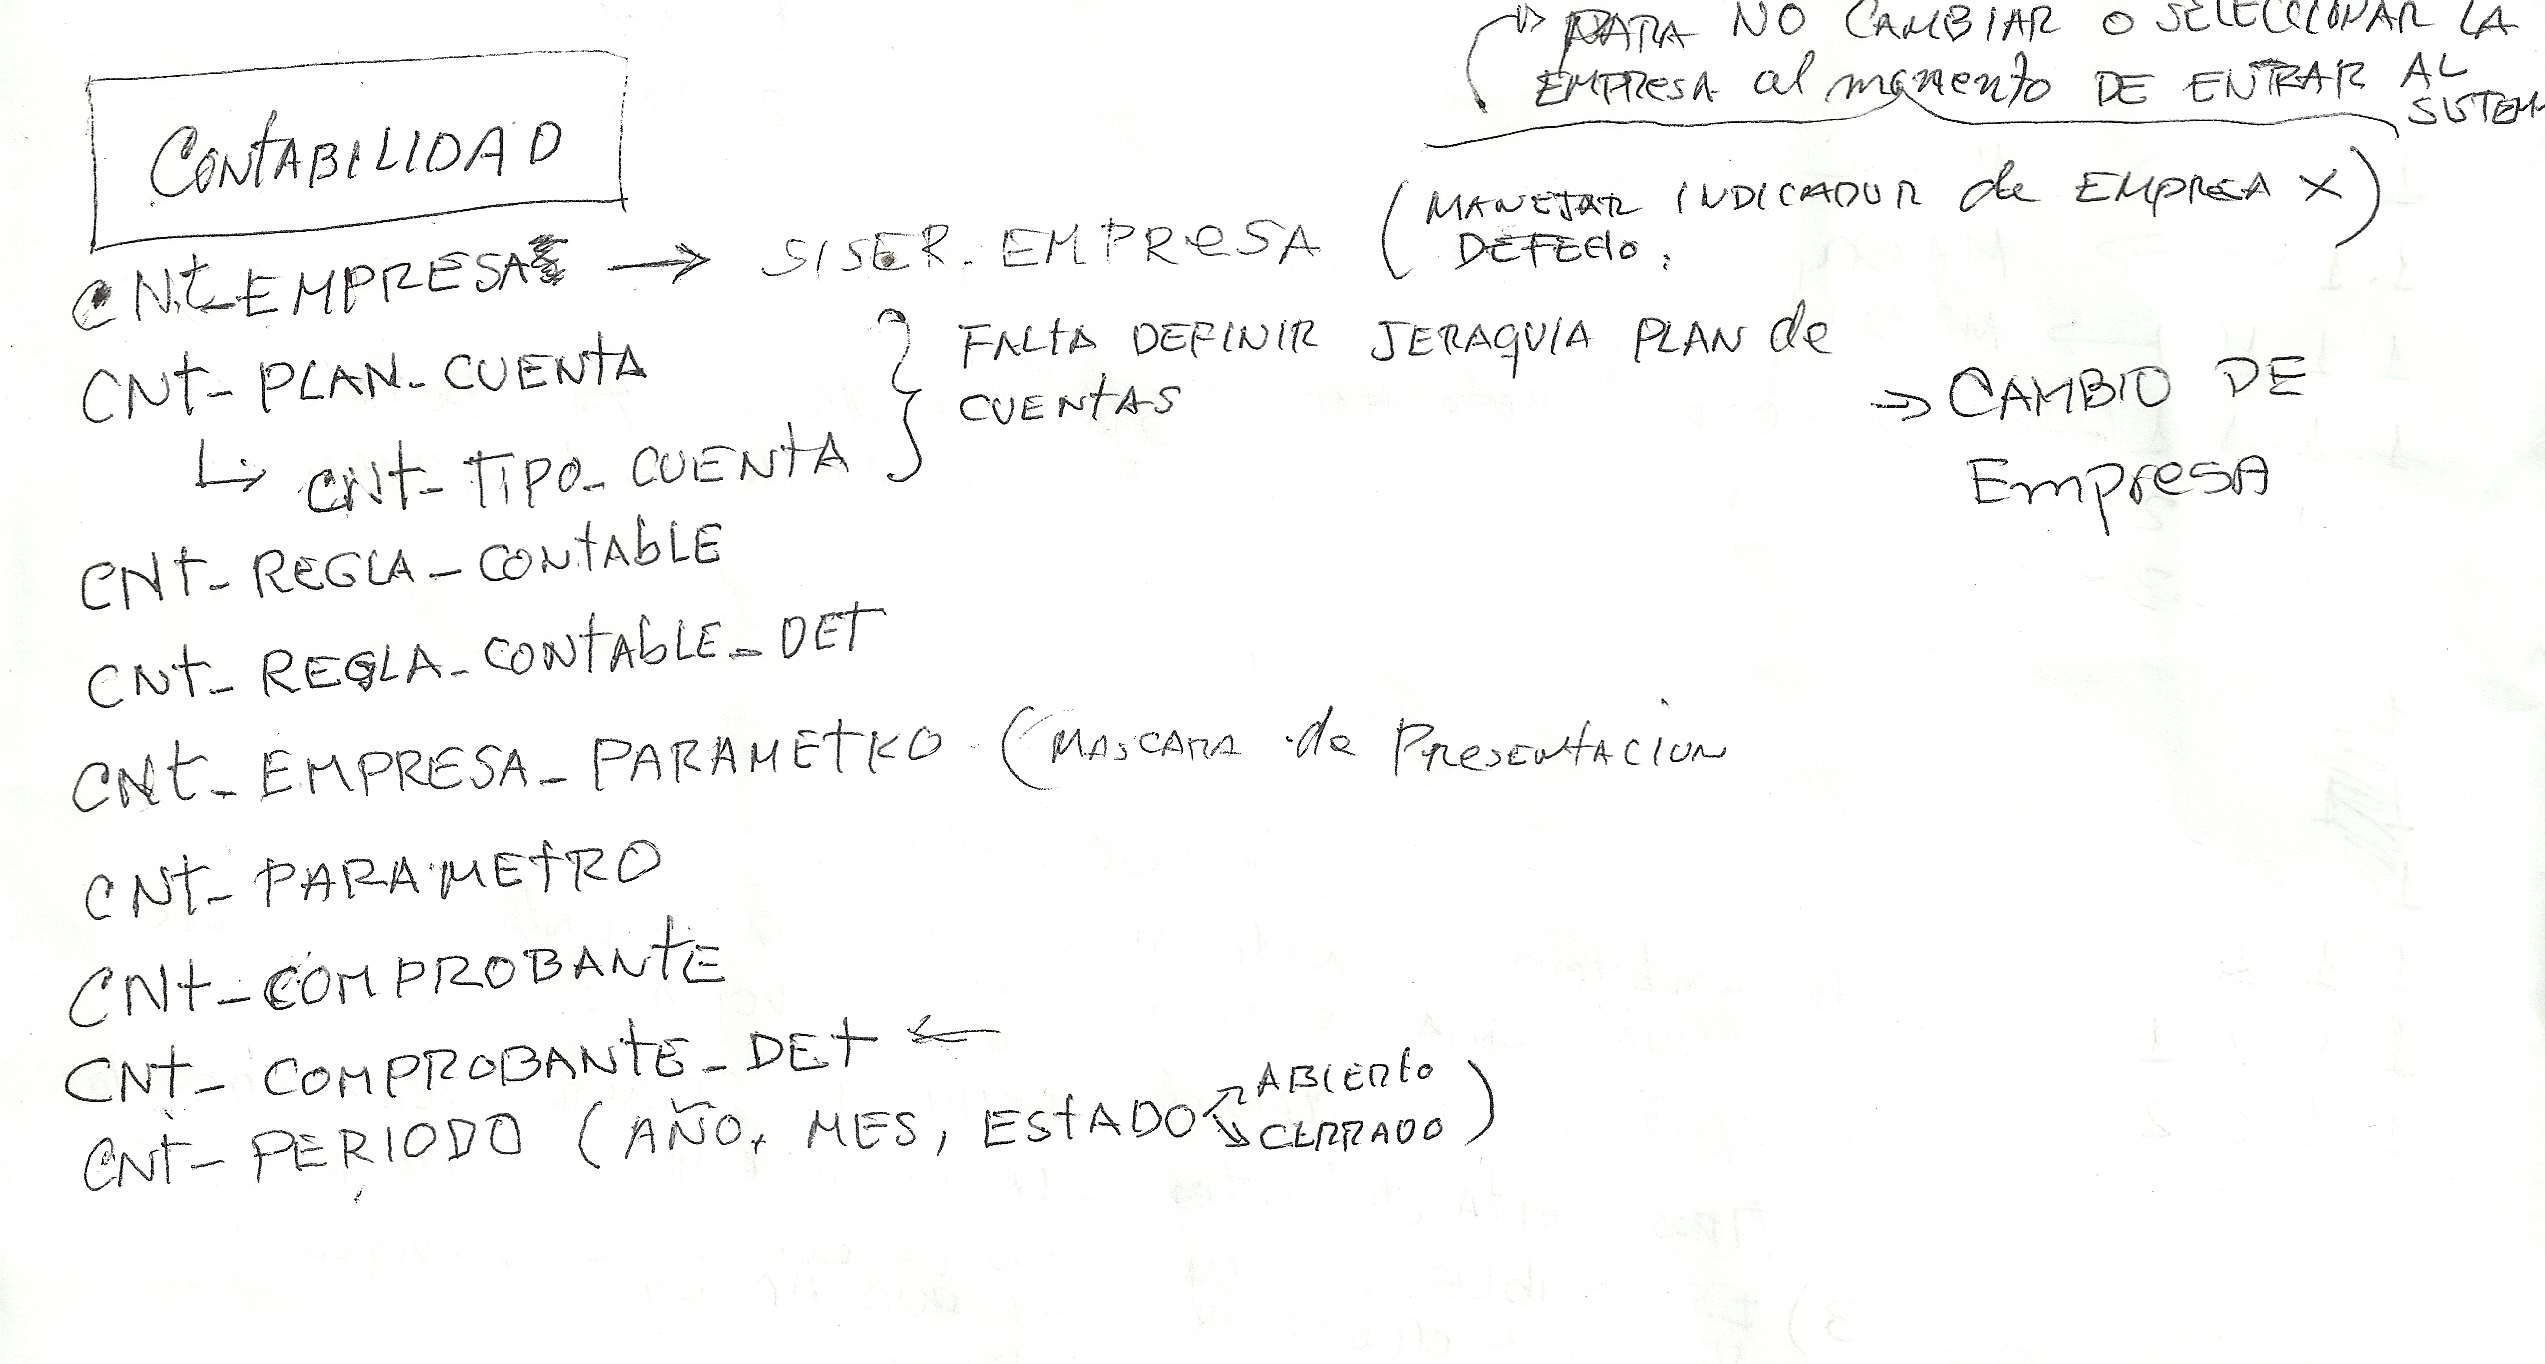 PARA NO CAMBIAR O SELECCIONAR LA
EMPRESA al momento DE ENTRAR AL
SISTEM
CONTABILIDAD
CNT_EMPRESA → SISER.EMPRESA (MANEJAR INDICADOR de EMPREA X
DEFECTO.)
CNT_PLAN_CUENTA } FALTA DEFINIR JERAQUIA PLAN de
CUENTAS
→ CAMBIO DE
EmpresA
↳ CNT_TIPO_CUENTA
CNT_REGLA_CONTABLE
CNT_REGLA_CONTABLE_DET
CNT_EMPRESA_PARAMETRO (MASCARA de PRESENTACION
CNT_PARAMETRO
CNT_COMPROBANTE
CNT_COMPROBANTE_DET ←
CNT_PERIODO (AÑO, MES, ESTADO ABIERTO
CERRADO)